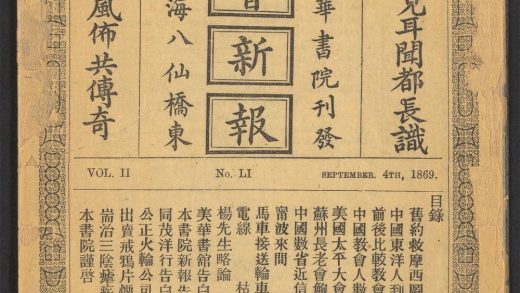 見耳聞都長識
華書院刊發
會新報
海八仙橋東
風佈共傳奇
VOL. II No. LI SEPTEMBER. 4TH, 1869.
目錄
舊約救摩西圖
中國東洋人刊
前後比較教會
中國教會人數
美國太平大會
蘇州長老會鮑
中國數省近信
甯波來聞
馬車接送輪車
電線 枯
楊先生略論
美華書館告白
本書院新報告
同茂洋行告白
公正火輪公司
出賣戒鴉片
耑治三陰瘧疾
本書院謹啓